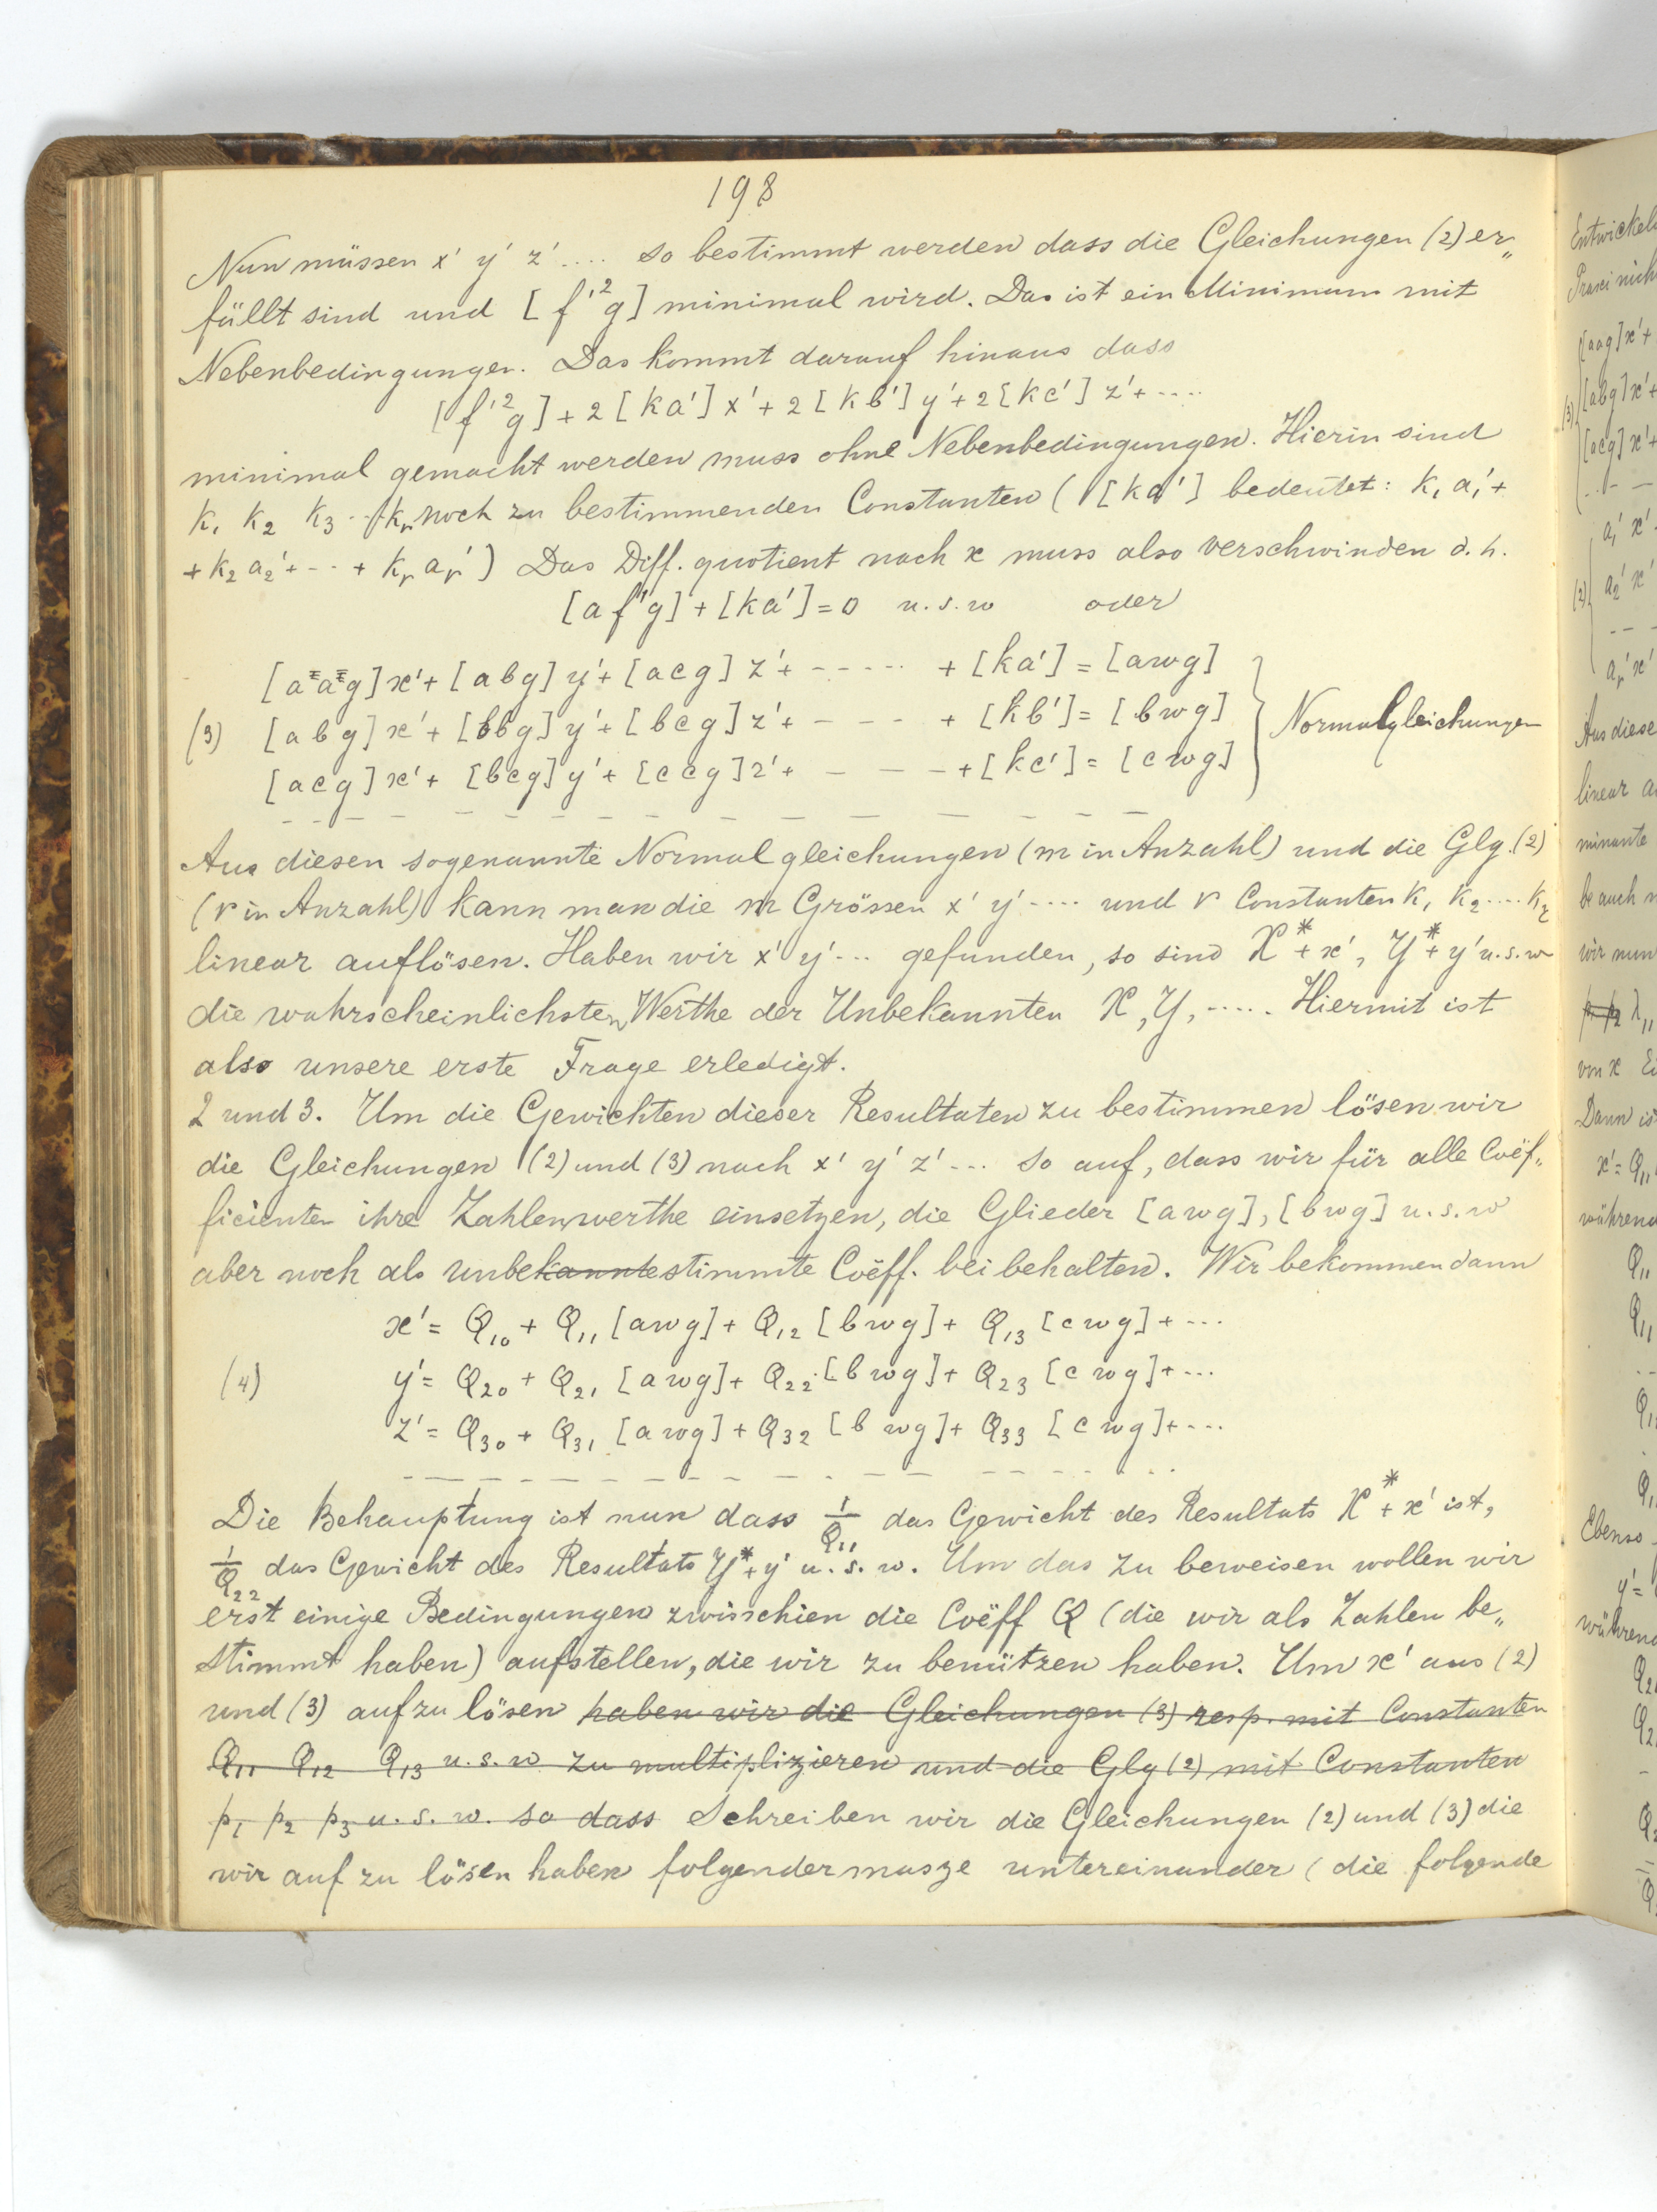 198
Nun müssen x' y' z' .... so bestimmt werden dass die Gleichungen (2) er„
füllt sind und [f'²g] minimal wird. Das ist ein Minimum mit
Nebenbedingungen. Das kommt darauf hinaus dass
[f'²g] + 2[ka']x' + 2[kb']y' + 2[kc']z' + ....
minimal gemacht werden muss ohne Nebenbedingungen. Hierin sind
k₁ k₂ k₃ ... kᵣ noch zu bestimmenden Constanten ([ka'] bedeutet: k₁a₁' +
+ k₂a₂' + --- + kᵣaᵣ') Das Diff. quotient nach x muss also verschwinden d.h.
[af'g] + [ka'] = 0 u.s.w oder
[aag]x' + [abg]y' + [acg]z' + ------ + [ka'] = [awg]
(3) [abg]x' + [bbg]y' + [bcg]z' + - - - - + [kb'] = [bwg] } Normalgleichungen
[acg]x' + [bcg]y' + [ccg]z' + - - - - + [kc'] = [cwg]
Aus diesen sogenannte Normalgleichungen (m in Anzahl) und die Glg. (2)
(r in Anzahl) kann man die m Grössen x' y' .... und r Constanten k₁ k₂ .... kᵣ
linear auflösen. Haben wir x' y' ... gefunden, so sind X* + x', Y* + y' u.s.w
die wahrscheinlichsten Werthe der Unbekannten X, Y, ..... Hiermit ist
also unsere erste Frage erledigt.
2 und 3. Um die Gewichten dieser Resultaten zu bestimmen lösen wir
die Gleichungen (2) und (3) nach x' y' z' ... so auf, dass wir für alle Coëf„
ficienten ihre Zahlenwerthe einsetzen, die Glieder [awg], [bwg] u.s.w
aber noch als unbekanntestimmte Coëff. bei behalten. Wir bekommen dann
x' = Q₁₀ + Q₁₁[awg] + Q₁₂[bwg] + Q₁₃[cwg] + ...
(4) y' = Q₂₀ + Q₂₁[awg] + Q₂₂[bwg] + Q₂₃[cwg] + ...
z' = Q₃₀ + Q₃₁[awg] + Q₃₂[bwg] + Q₃₃[cwg] + ...
Die Behauptung ist nun dass 1/Q₁₁ das Gewicht des Resultats X* + x' ist,
1/Q₂₂ das Gewicht des Resultats Y* + y' u.s.w. Um das zu beweisen wollen wir
erst einige Bedingungen zwisschien die Coëff Q (die wir als Zahlen be„
stimmt haben) aufstellen, die wir zu benützen haben. Um x' aus (2)
und (3) aufzulösen haben wir die Gleichungen (3) resp. mit Constanten
Q₁₁ Q₁₂ Q₁₃ u.s.w zu multiplizieren und die Glg (2) mit Constanten
p₁ p₂ p₃ u.s.w. so dass Schreiben wir die Gleichungen (2) und (3) die
wir auf zu lösen haben folgendermasze untereinander (die folgende
Entwickel
[aag]x' +
(3) [abg]x' +
[acg]x' +
a₁'x'
(2) a₂'x'
aᵣ'x'
Aus diese
linear a
minante
be auch
wir nun
von x
Dann is
x' = Q₁₁
während
Q₁₁
Q₁₁
Ebenso
y' =
während